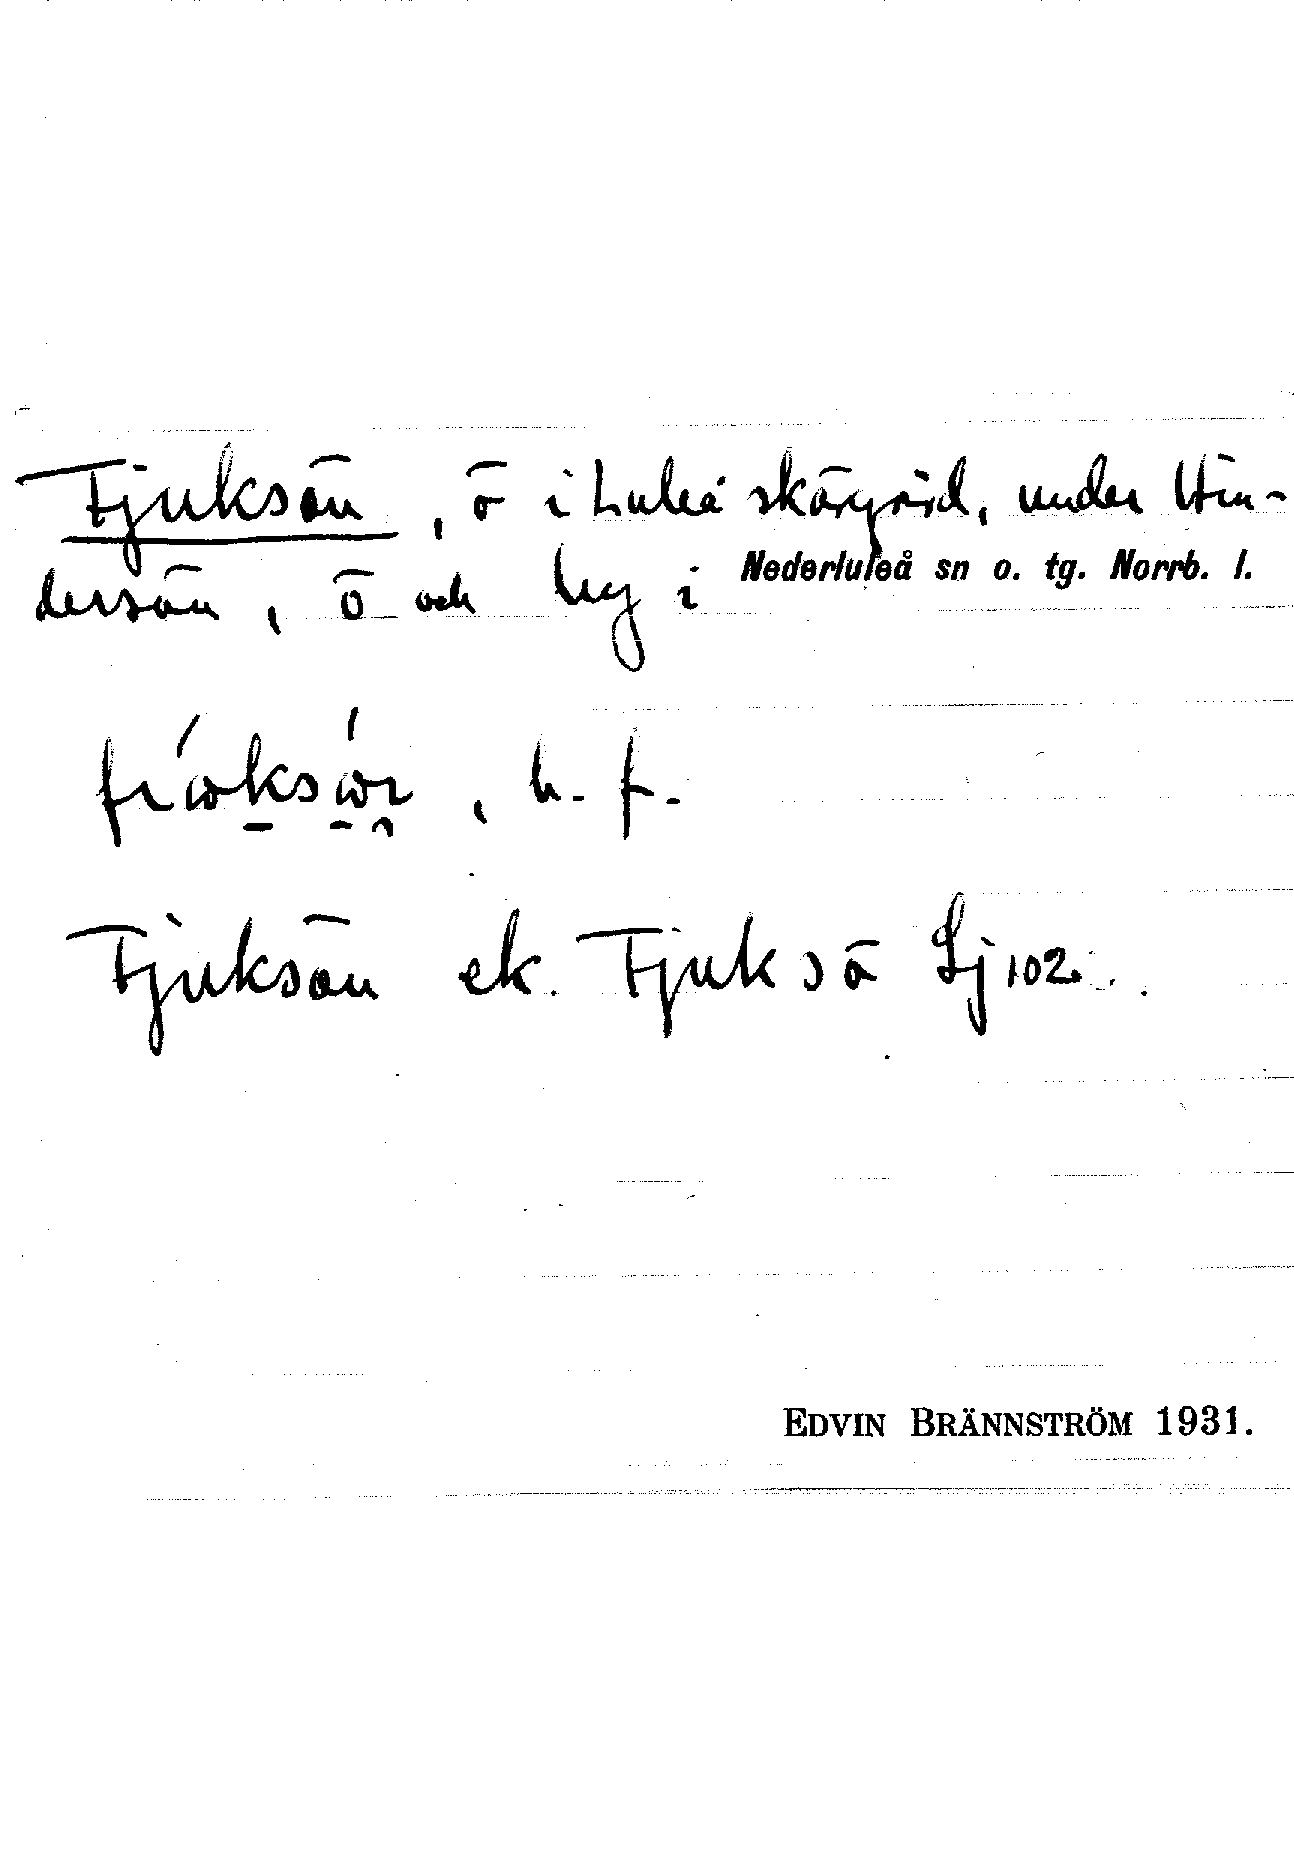 Tjuksön, ö i Luleå skärgård, under Hin-
dersön, ö och by i Nederluleå sn o. tg. Norrb. l.
, h. f.
Tjuksön ek. Tjuksö Lj 102.
EDVIN BRÄNNSTRÖM 1931.